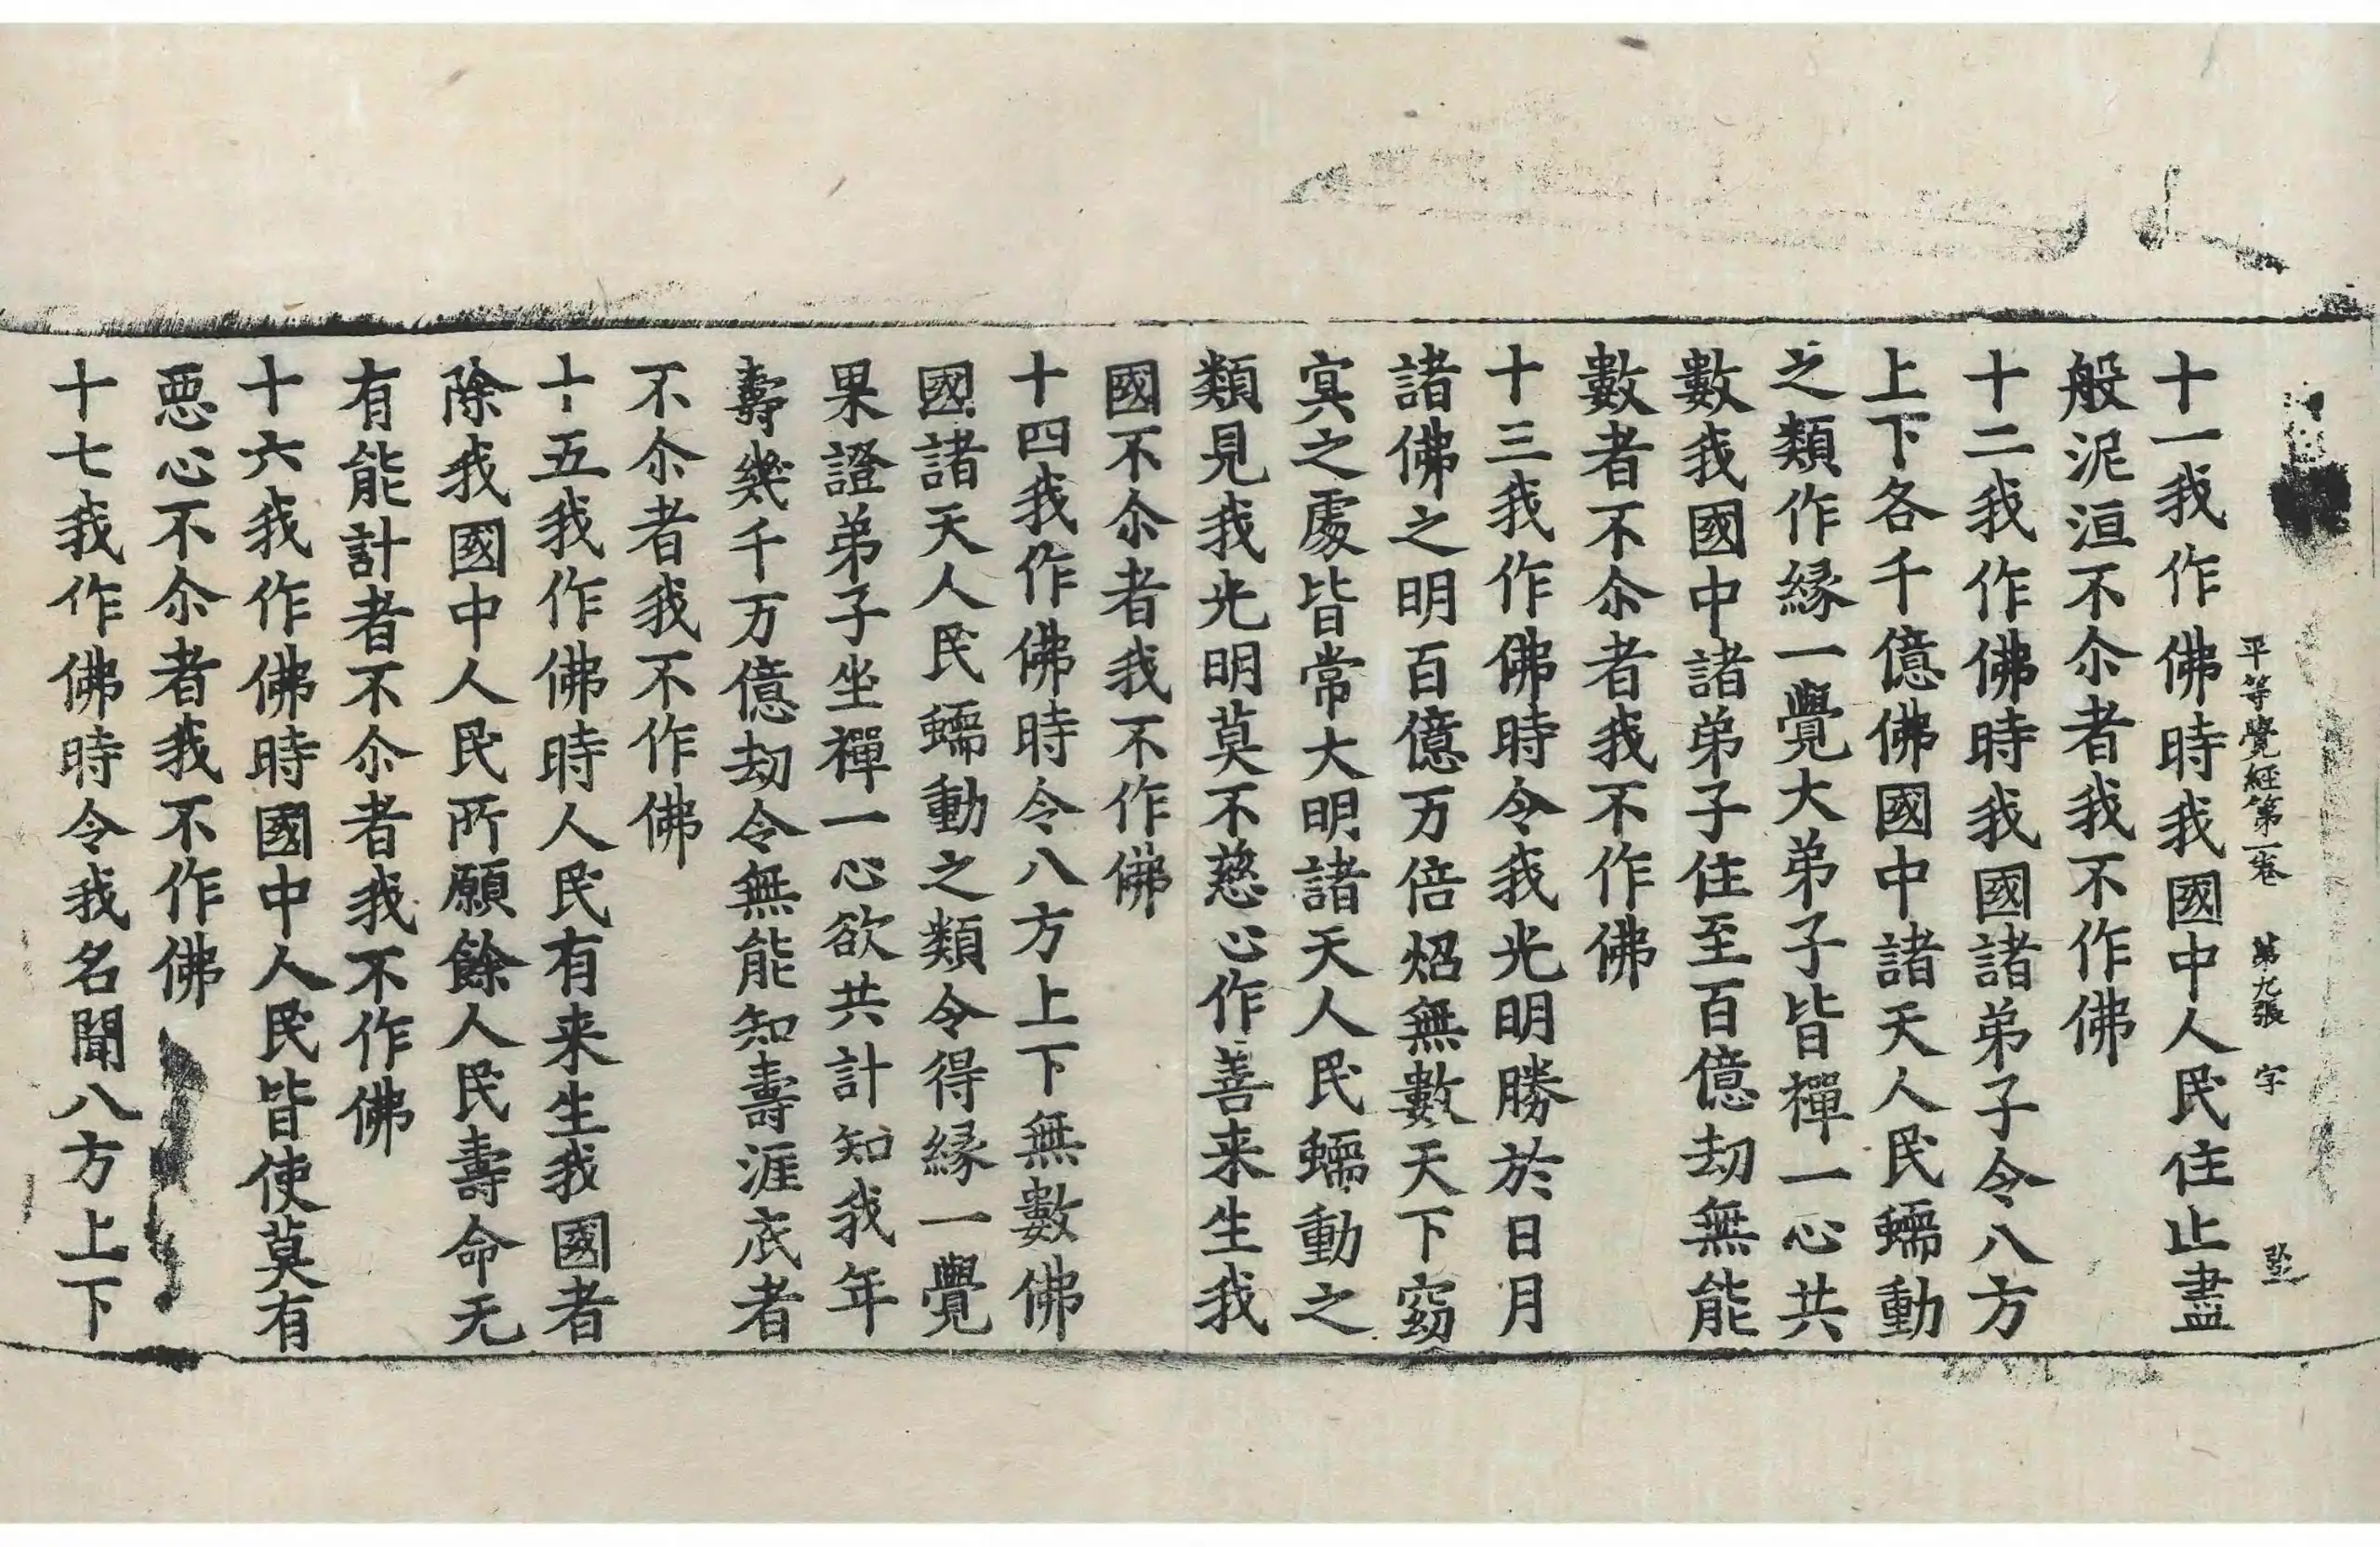 平等覺經第一卷 第九張 字
十一我作佛時我國中人民住止盡
般泥洹不尒者我不作佛
十二我作佛時我國諸弟子令八方
上下各千億佛國中諸天人民蠕動
之類作緣一覺大弟子皆禪一心共
數我國中諸弟子住至百億劫無能
數者不尒者我不作佛
十三我作佛時令我光明勝於日月
諸佛之明百億万倍炤無數天下窈
冥之處皆常大明諸天人民蠕動之
類見我光明莫不慈心作善来生我
國不尒者我不作佛
十四我作佛時令八方上下無數佛
國諸天人民蠕動之類令得緣一覺
果證弟子坐禪一心欲共計知我年
壽幾千万億劫令無能知壽涯底者
不尒者我不作佛
十五我作佛時人民有来生我國者
除我國中人民所願餘人民壽命无
有能計者不尒者我不作佛
十六我作佛時國中人民皆使莫有
惡心不尒者我不作佛
十七我作佛時令我名聞八方上下